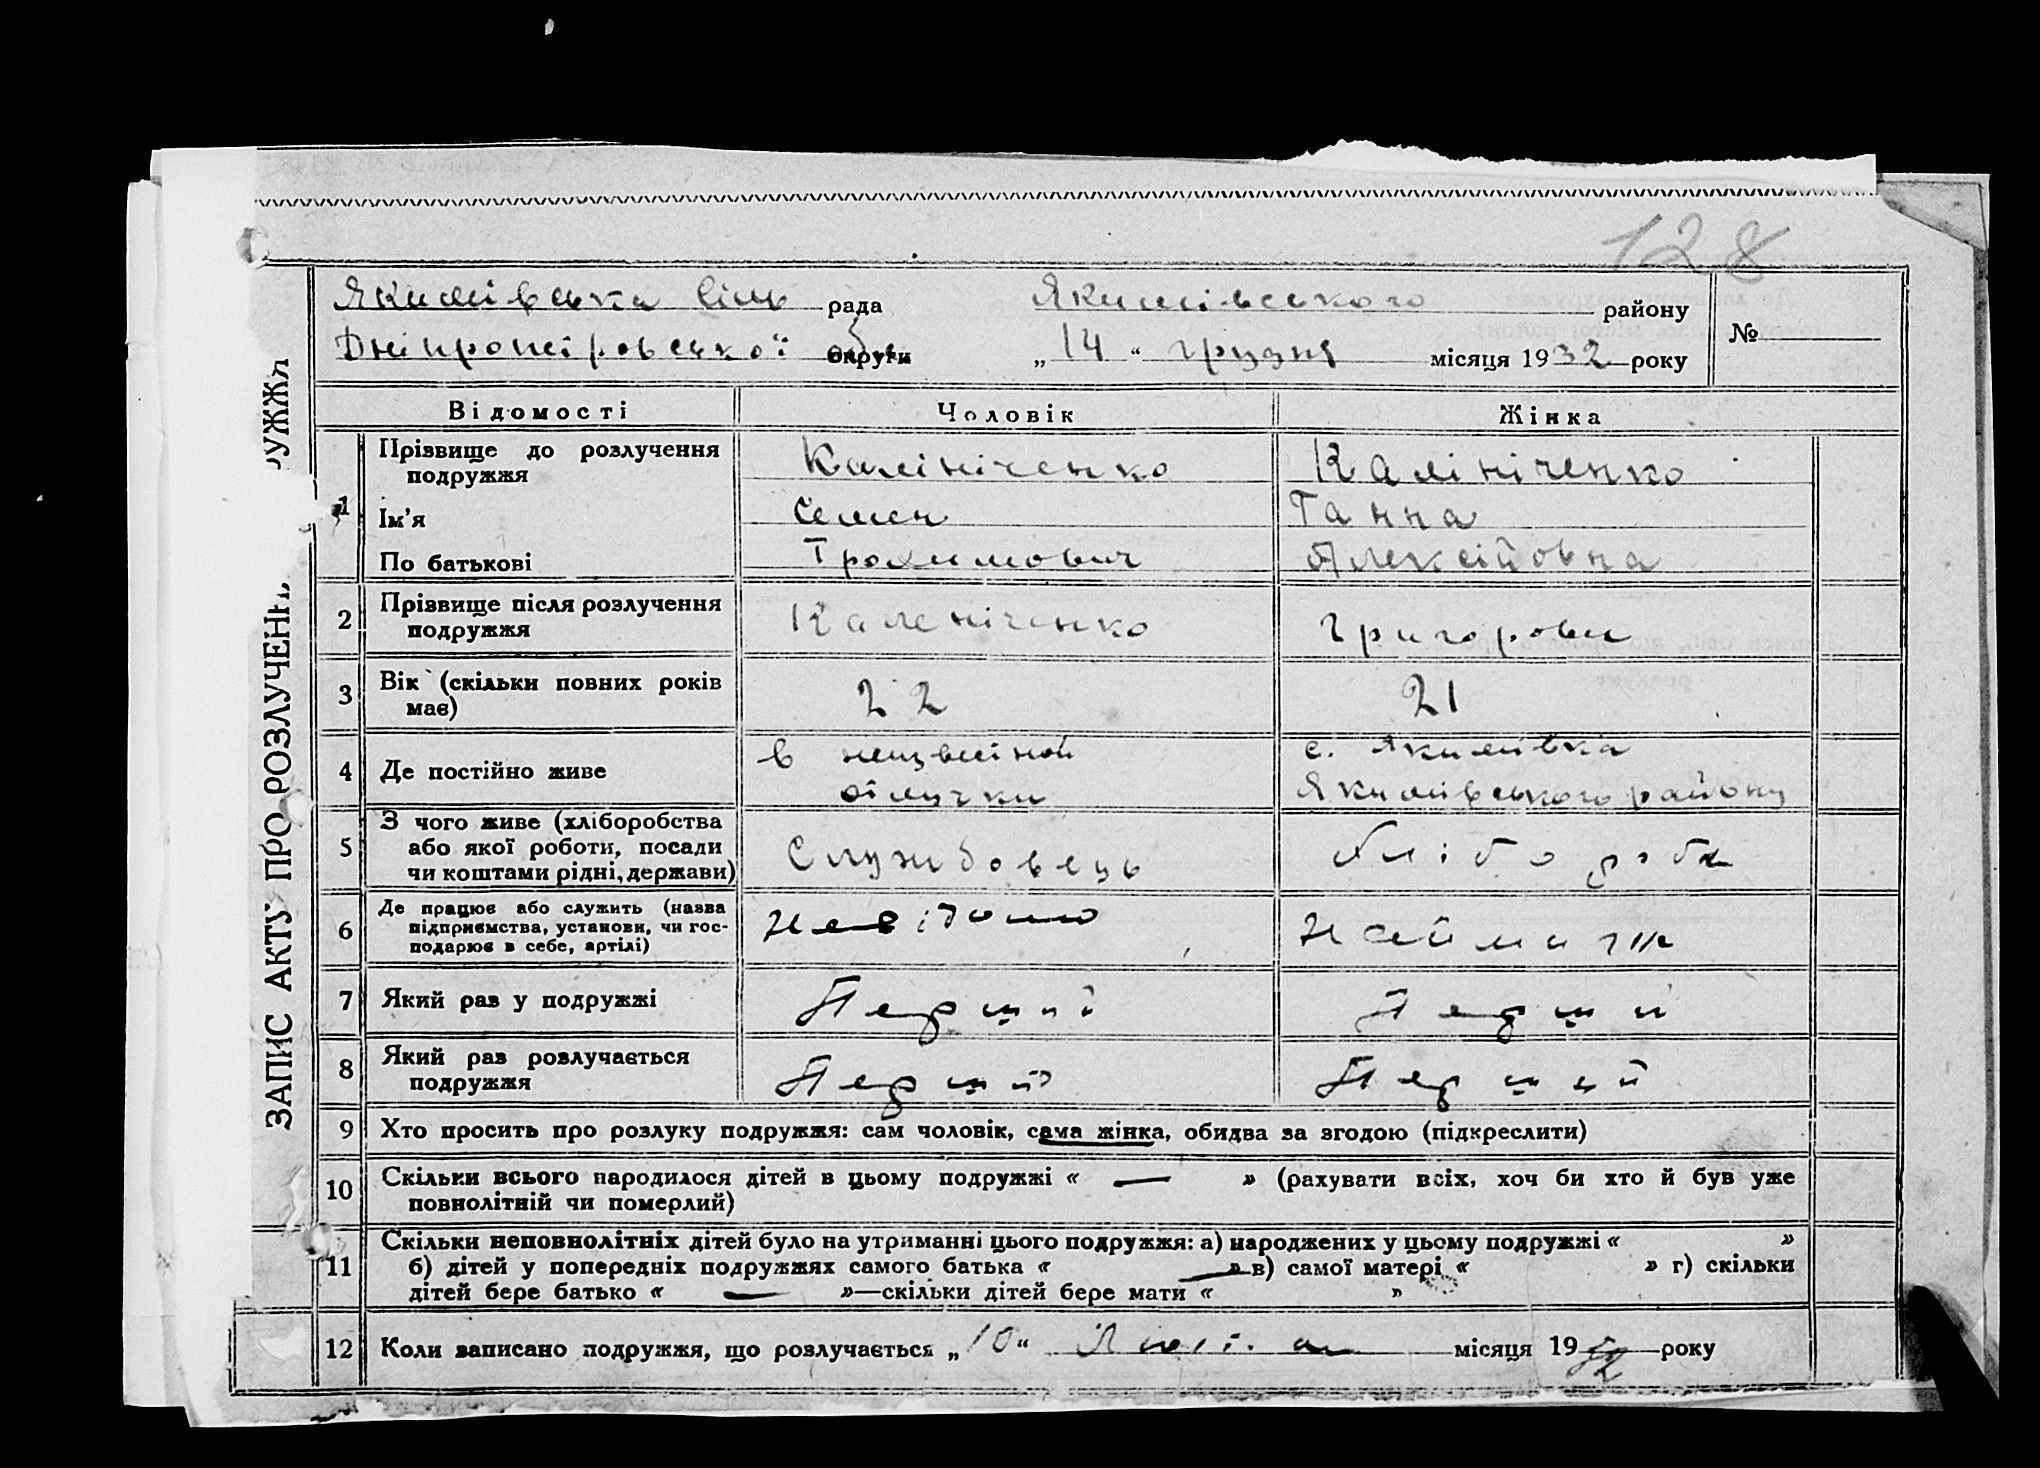 128
Якимівська сіль рада Якимівського району
Дніпропетровської округи обл „14“ грудня місяця 1932 року
№
ЗАПИС АКТУ ПРО РОЗЛУЧЕННЯ
Відомості Чоловік Жінка
1 Прізвище до розлучення подружжя Калініченко Калініченко
Ім'я Семен Ганна
По батькові Трохимович Алексійовна
2 Прізвище після розлучення подружжя Калениченко Григорови
3 Вік (скільки повних років має) 22 21
4 Де постійно живе в неизвесіной с. Якимівка
Якимівського району
5 З чого живе (хліборобства або якої роботи, посади чи коштами рідні, держави) Службовець Хлібороба
6 Де працює або служить (назва підприємства, установи, чи господарює в себе, артілі) Невідомо
7 Який раз у подружжі Перший Перший
8 Який раз розлучається подружжя Перший Перший
9 Хто просить про розлуку подружжя: сам чоловік, сама жінка, обидва за згодою (підкреслити)
10 Скільки всього народилося дітей в цьому подружжі « — » (рахувати всіх, хоч би хто й був уже
повнолітній чи померлий)
11 Скільки неповнолітніх дітей було на утриманні цього подружжя: а) народжених у цьому подружжі « »
б) дітей у попередніх подружжях самого батька « — » в) самої матері « » г) скільки
дітей бере батько « — »—скільки дітей бере мати « »
12 Коли записано подружжя, що розлучається „10“ місяця 1932 року